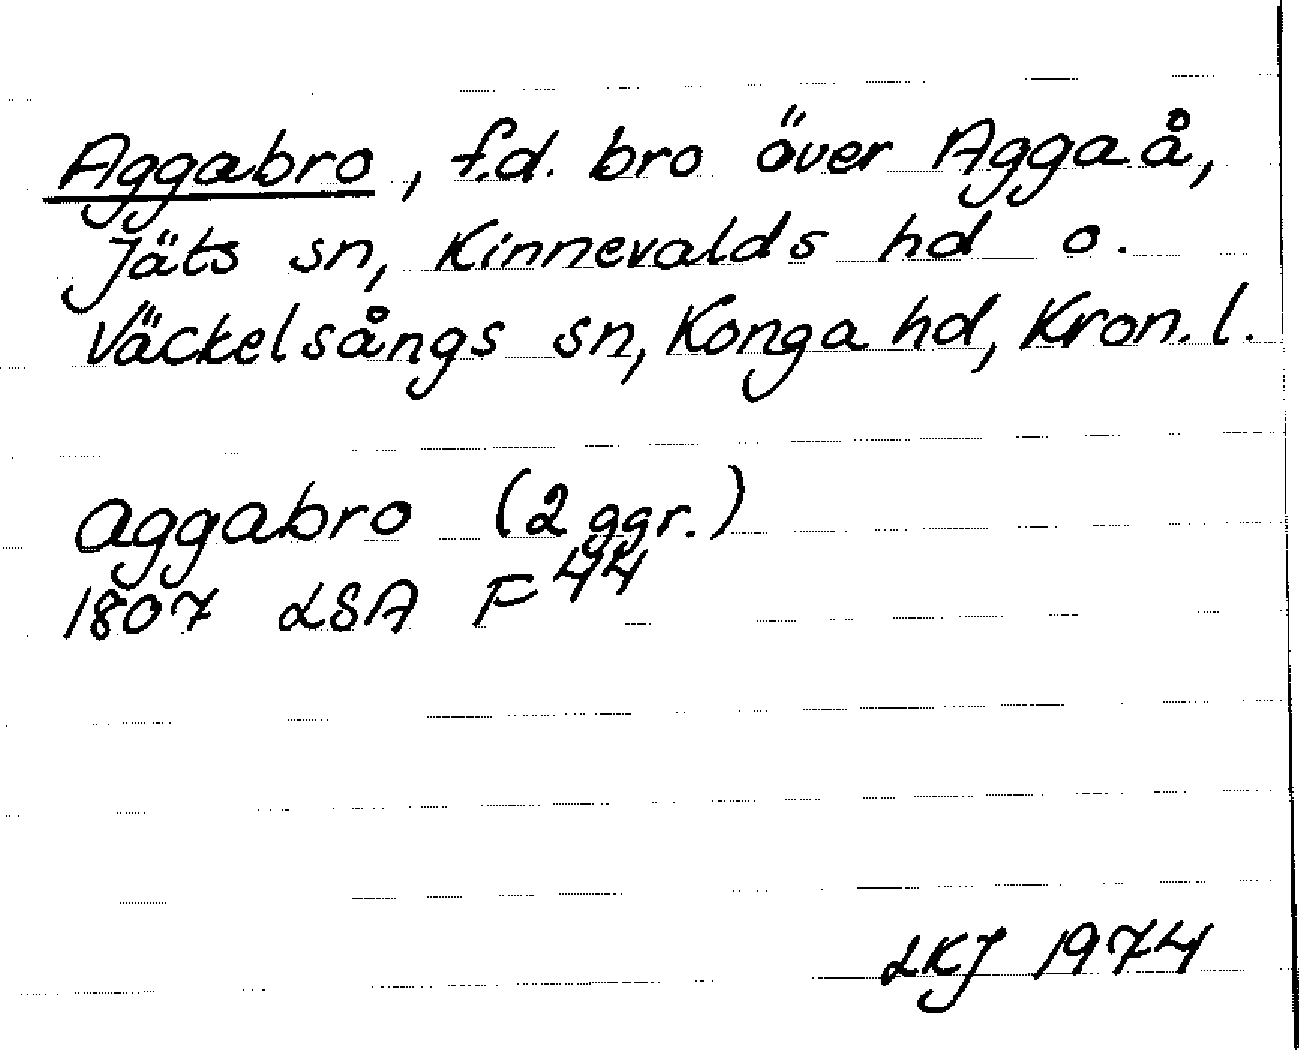 Aggabro, f.d. bro över Aggaå,
Jäts sn, Kinnevalds hd o.
Väckelsångs sn, Konga hd, Kron. l.
Aggabro (2 ggr.)
1807 LSA F44
LKJ 1974